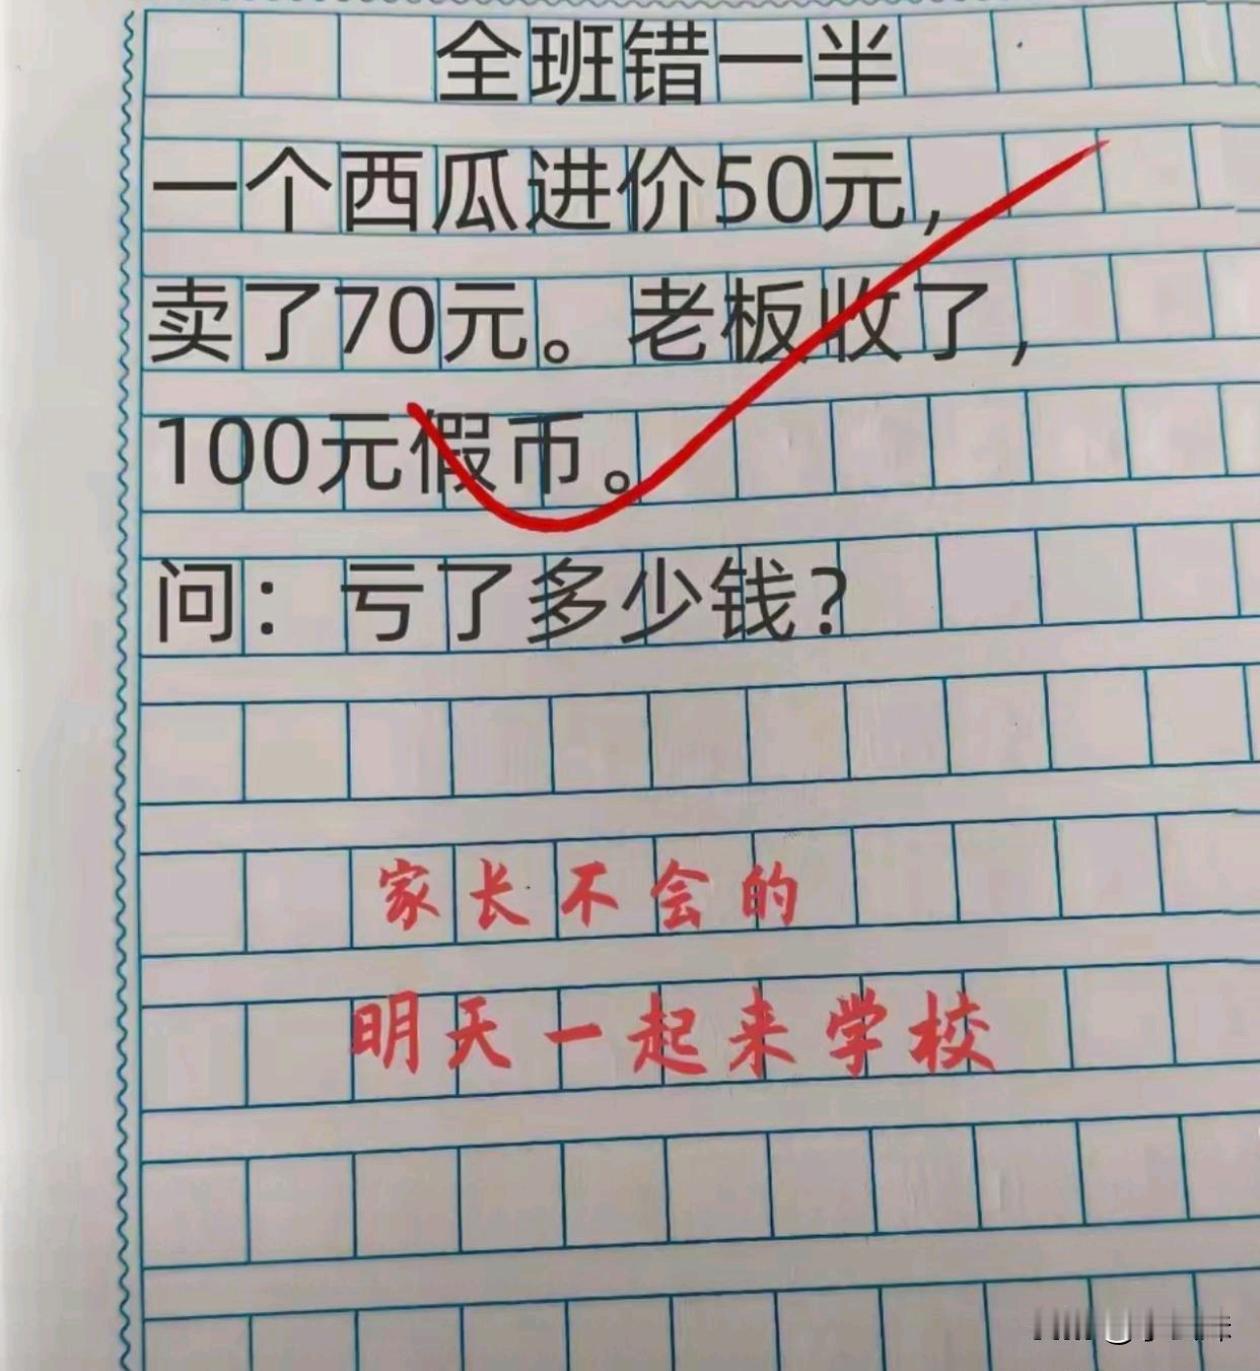 全班错一半
一个西瓜进价50元，
卖了70元。老板收了，
100元假币。
问：亏了多少钱？
家长不会的
明天一起来学校